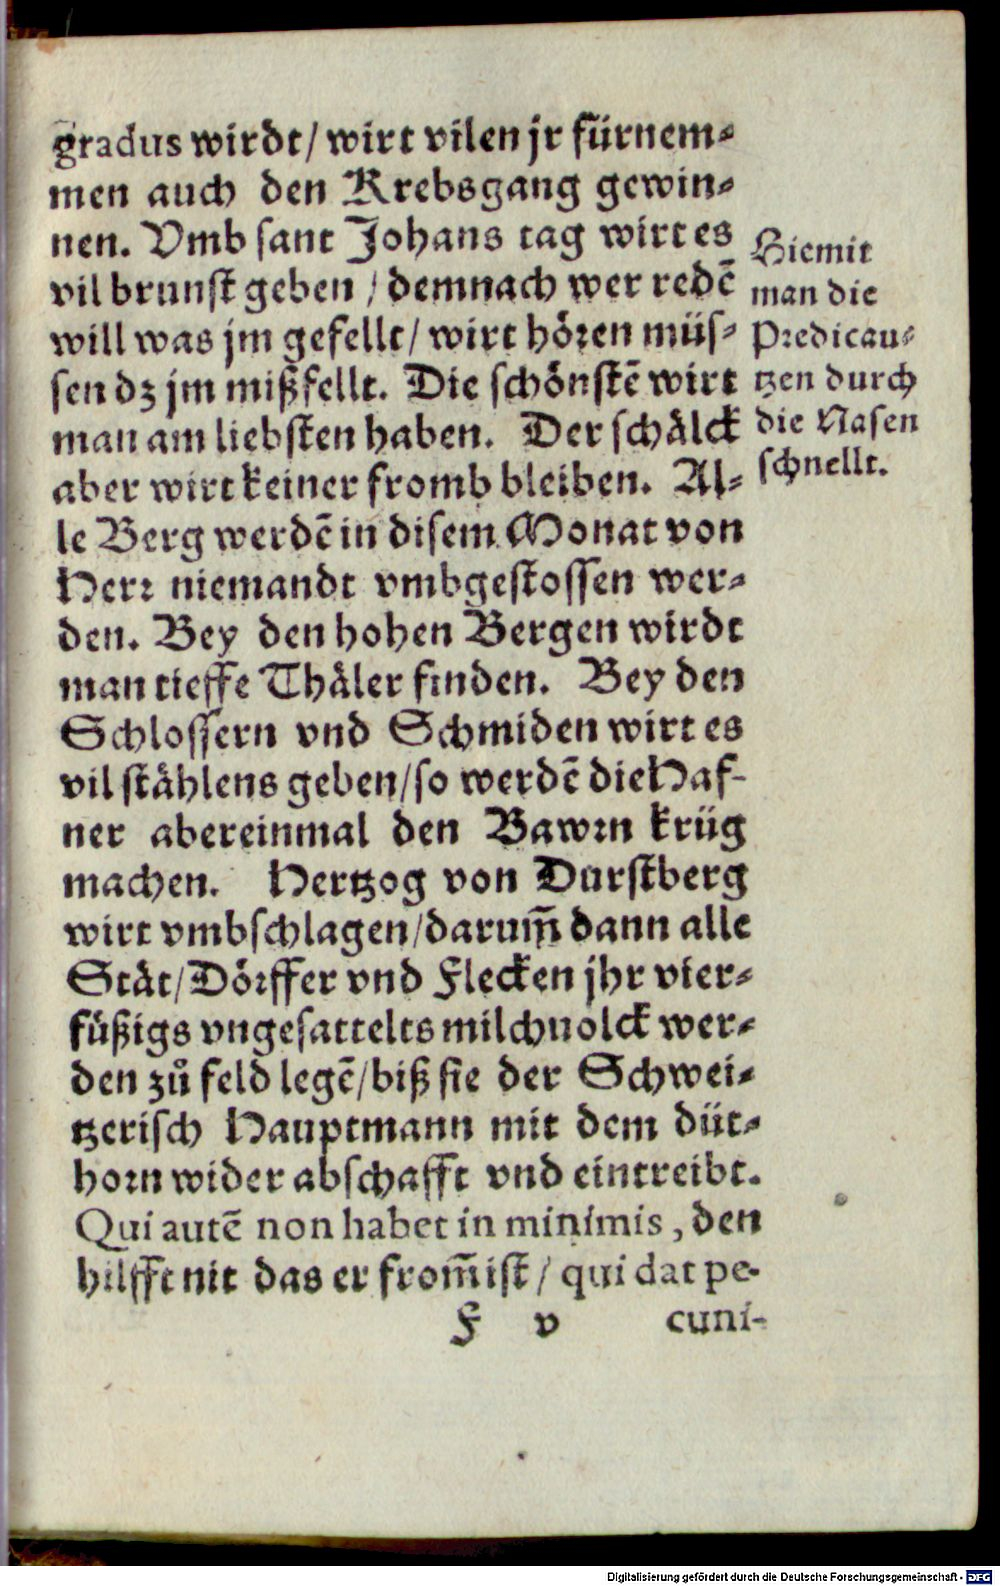 gradus wirdt/ wirt vilen jr fürnem⸗
men auch den Krebsgang gewin⸗
nen. Vmb sant Johans tag wirt es
vil brunst geben / demnach wer redẽ
will was jm gefellt/ wirt hören müs⸗
sen dz jm mißfellt. Die schönstẽ wirt
man am liebsten haben. Der schälck
aber wirt keiner fromb bleiben. Al⸗
le Berg werdẽ in disem Monat von
Herr niemandt vmbgestossen wer⸗
den. Bey den hohen Bergen wirdt
man tieffe Thäler finden. Bey den
Schlossern vnd Schmiden wirt es
vil stählens geben/so werdẽ die Haf-
ner abereinmal den Bawrn krüg
machen. Hertzog von Durstberg
wirt vmbschlagen/darum̃ dann alle
Stät/Dörffer vnd Flecken jhr vier⸗
füßigs vngesattelts milchuolck wer⸗
den zů feld legẽ/biß sie der Schwei⸗
tzerisch Hauptmann mit dem düt⸗
horn wider abschafft vnd eintreibt.
Qui autẽ non habet in minimis, den
hilfft nit das er from̃ ist / qui dat pe-
F v cuni-
Hiemit
man die
Predicau⸗
tzen durch
die Nasen
schnellt.
Digitalisierung gefördert durch die Deutsche Forschungsgemeinschaft - DFG